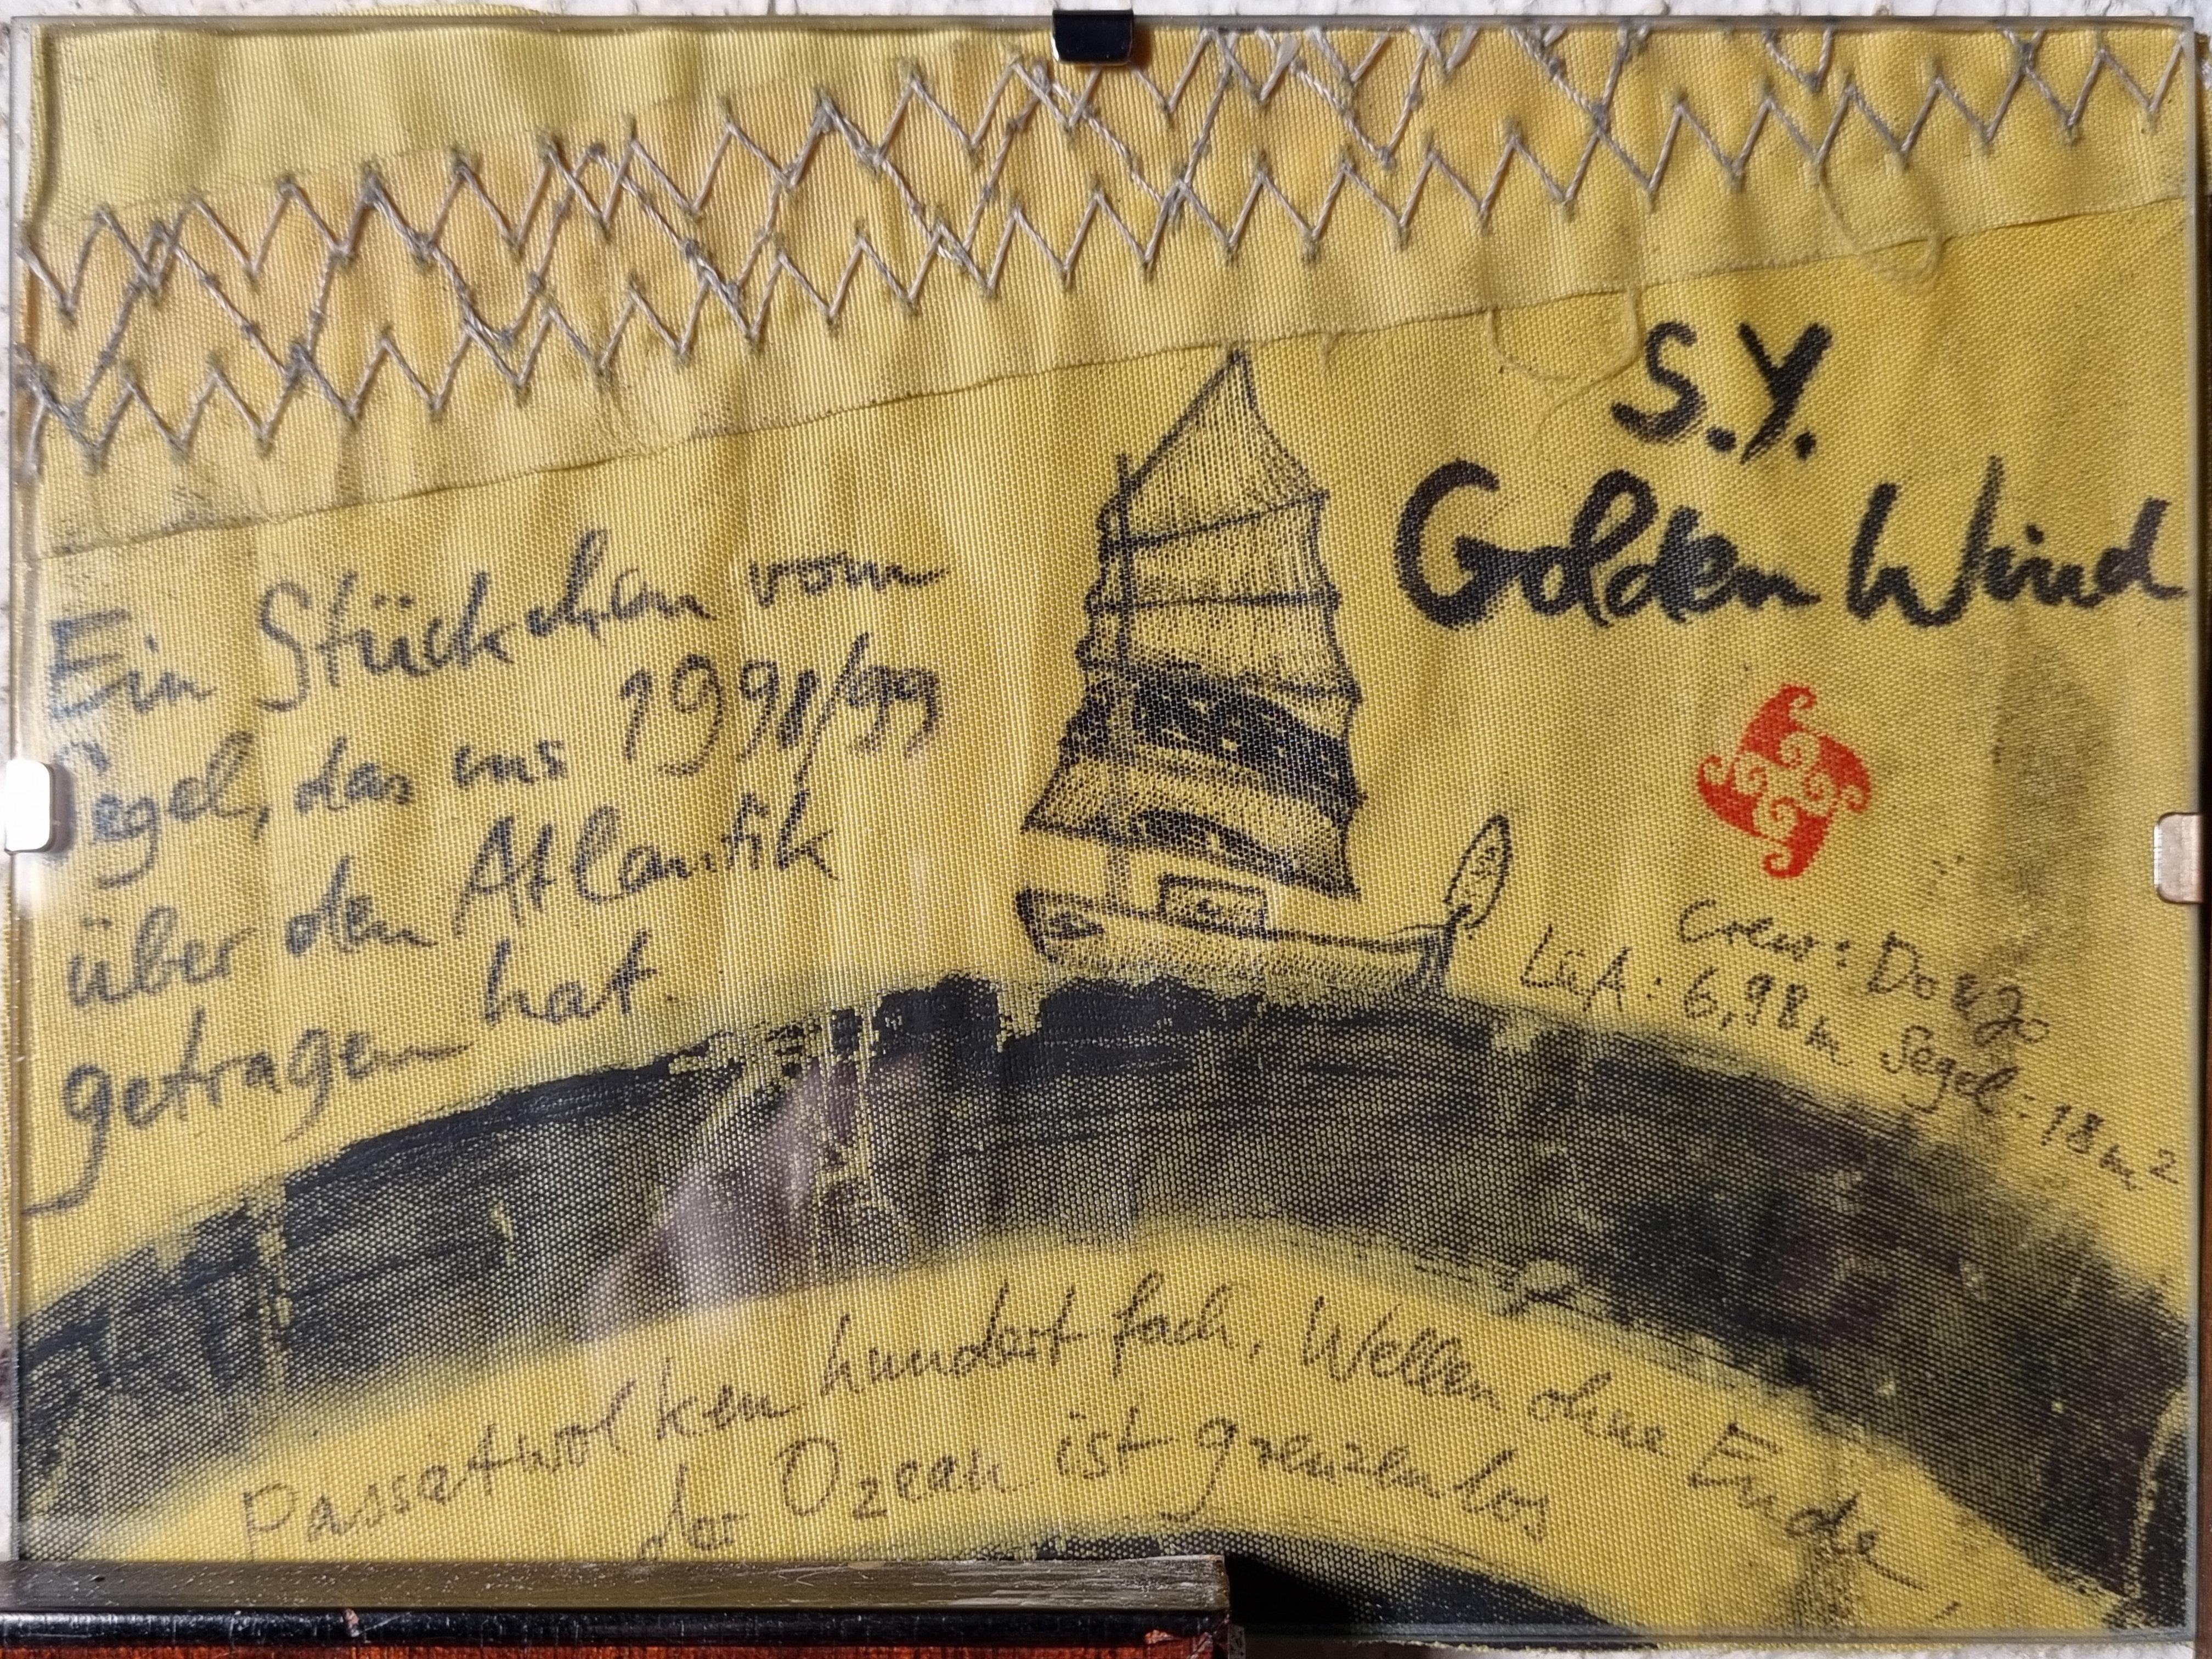 S.Y.
Golden Wind
Ein Stückchen vom
Segel, das uns 1998/99
über den Atlantik
getragen hat.
Crew: Do & Jo
LüA: 6,98m Segel: 18m²
Passatwolken hundertfach, Wellen ohne Ende,
der Ozean ist grenzenlos